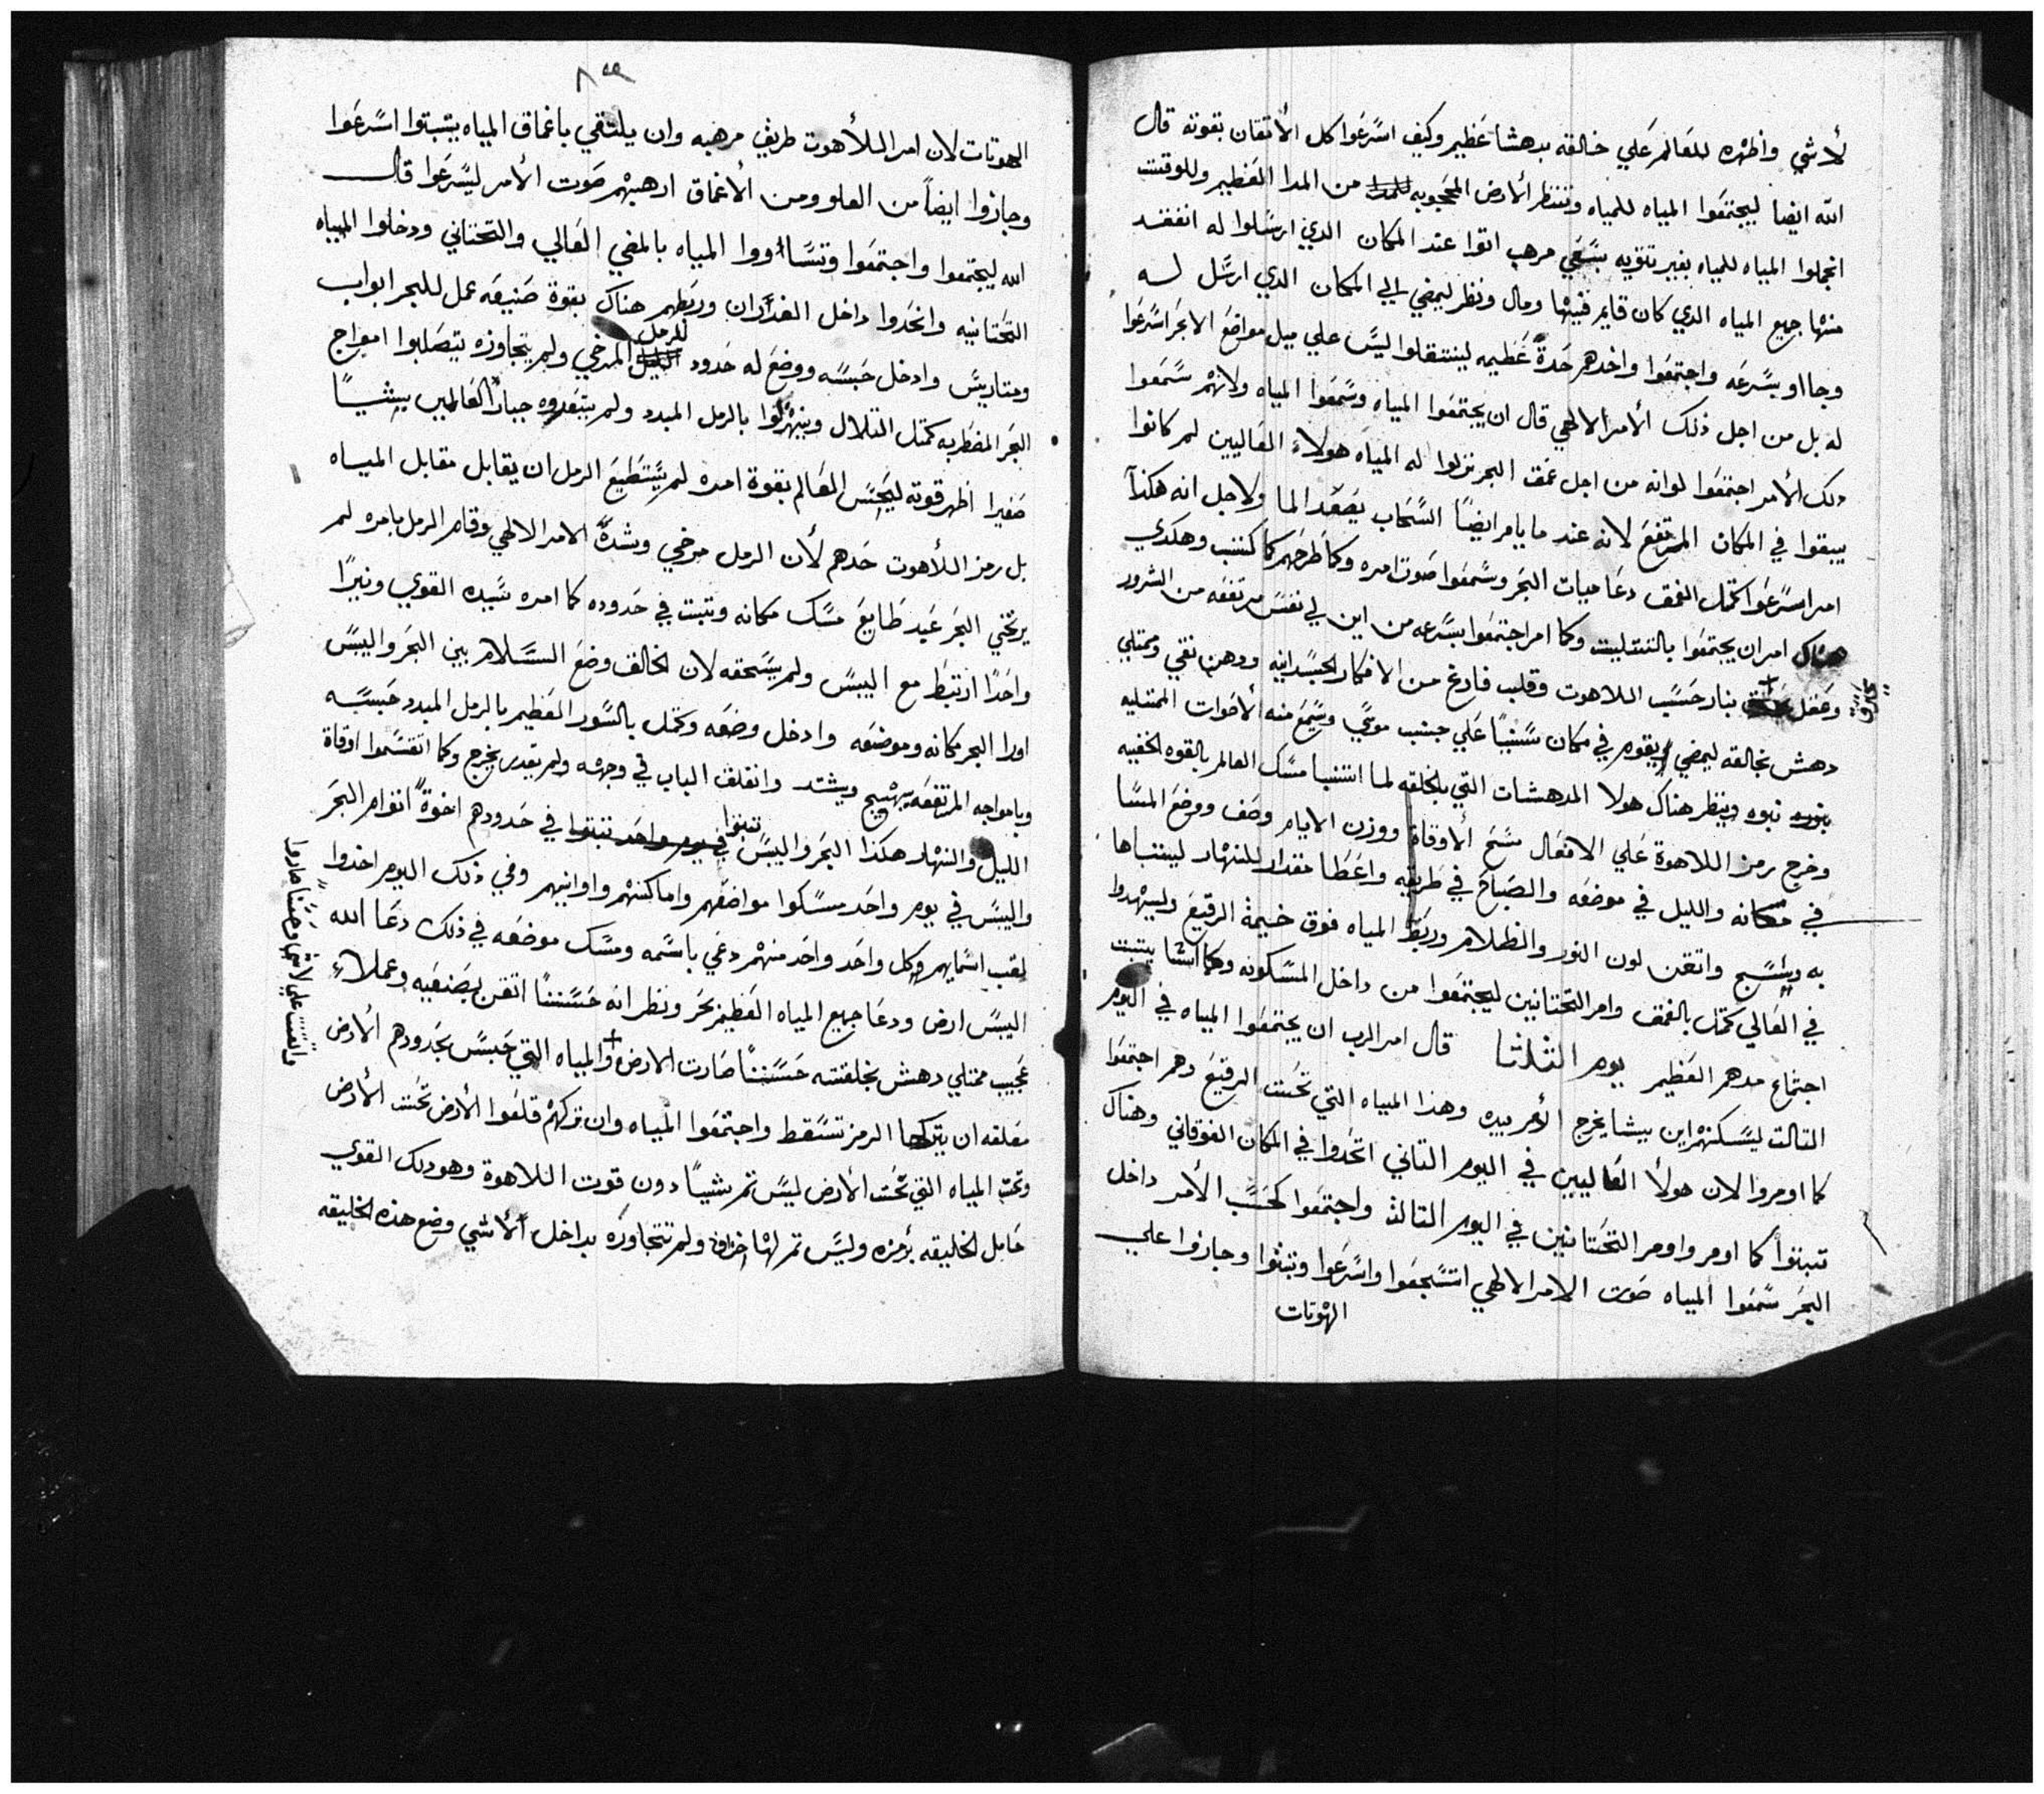 لأشي واظهره للعالم علي خالقه بدهشا عظيم وكيف اسرعوا كل الأتقان بقوته قال
الله ايضا ليجتمعوا المياه للمياه وتنتظر الأرض المحجوبه من المدا العظيم وللوقت
انجملوا المياه للمياه بغير تنويه بسعي مرهب اتوا عند المكان الدي ارسلوا له انفقد
منها جميع المياه الدي كان قايم فيها ومال ونظر ليمضي الي المكان الدي ارسل له
وجااو بسرعه واجتمعوا واخدهم حدة عظيمه لينتقلوا ليس علي ميل مواضع الابحر اسرعوا
له بل من اجل ذلك الأمر الالهي قال ان يجتمعوا المياه وسمعوا المياه ولانهم سمعوا
دلك الأمر اجتمعوا لوانه من اجل عمق البحر نزلوا له المياه هولاء العاليين لم كانوا
يبقوا في المكان المرتفع لانه عند ما يامر ايضا السحاب يصعد الما ولاجل انه هكذا
امر اسرعوا كمثل العمق دعا ميات البحر وسمعوا صوت امره وكما طرحهم كما كتب وهكدي
هناك امر ان يجتمعوا بالتتليت وكما امر اجتمعوا بسرعه من اين لي نفس مرتفعه من الشرور
وعقل بنار حسب اللاهوت وقلب فارغ من الافكار الجسدانيه ودهن نقي وممتلي
دهش بخالقه ليمضي ويقوم في مكان سنيا علي جنب موسي وسمع منه الأصوات الممتليه
نبوه وينظر هناك هولا المدهشات التي بالخلقه لما انتنبا مسك العالم بالقوه الخفيه
وخرج رمز اللاهوة علي الافعال سنح الأوقاة ووزن الايام وصف ووضع المسا
في مكانه والليل في موضعه والصباح في طريقه واعطا مقدار للنهار ليتنباها
به ويسبح واتقن لون النور والظلام وربط المياه فوق خيمة الرقيع وليشهدوا
في العالي كمثل بالعمق وامر التحتانين ليجتمعوا من داخل المسكونه وكما انشا يتبت
اجتماع مدهم العظيم يوم الثلثا قال امر الرب ان يجتمعوا المياه في اليوم
التالت ليسكنهم اين بيشا يخرج الأمر بيده وهذا المياه التي تحت الرقيع دهم اجتمعوا
كما اومروا الان هولأ العاليين في اليوم التاني اتحدوا في المكان الفوقاني وهناك
تبتوا كما اومر واومر التحتانين في اليوم التالت واجتمعوا كحسب الأمر داخل
البحر سمعوا المياه صوت الامر الالهي انتسجموا واسرعوا وتبتوا وجازوا علي
الهوتات
الهوتات لان امر اللأهوت طريق مرهبه وان يلتقي باغماق المياه يتبتوا اسرعوا
وجازوا ايضا من العلو ومن الأغماق ارهبهم صوت الأمر ليسرعوا قال
الله ليجتمعوا واجتمعوا وتساووا المياه بالمضي العالي والتحتاني ودخلوا المياه
التحتانيه واتحدوا داخل الغدران وربطهم هناك بقوة صنيعه عمل للبحر ابواب
ومتاريس وادخل حبسه ووضع له حدود للرمل المرخي ولم يتجاوزه يتصلبوا امواج
البحر المضطربه كمثل التلال وينهزلوا بالرمل المبدد ولم يتبعدوه جبار العالمين بيشيا
صغيرا اظهر قوته ليحبس العالم بقوة امره لم يستطيع الرمل ان يقابل مقابل المياه
بل رمز اللأهوت حدهم لأن الرمل مرخي وبشدة الامر الالهي وقام الرمل بامره لم
يرتخي البحر عبد طايع مسك مكانه وتبت في حدوده كما امره سيده القوي ونيرا
واحدا ارتبط مع اليبس ولم يسحقه لان الخالق وضع السلام بين البحر واليبس
اورا البحر مكانه وموضعه وادخل وضعه وكمل بالسور العظيم بالرمل المبدد حبسه
وبامواجه المرتفعه يهيج ويشتد وانغلق الباب في وجهه ولم يقدر يخرج وكما اتقسموا اوقاة
الليل والنهار هكذا البحر واليبس تبتوا في يوم واحد تبتوا في حدودهم اخوة اتوام البحر
واليبس في يوم واحد مسكوا مواضعهم واماكنهم واوانيهم وفي ذلك اليوم اخدوا
لقب اسمايهم وكل واحد واحد منهم دعي باسمه ومسك موضعه في ذلك دعا الله
اليبس ارض ودعا جميع المياه العظيم بحر ونظر انه حسننا اتقن بصنعيه وعملاء
عجيب ممتلي دهش بخلقته حسننا صارت الارض والمياه التي حبس بحدودهم الأرض
معلقه ان يتركها الرمز تسقط واجتمعوا المياه وان تركهم قلعوا الأرض تحت الأرض
وتحت المياه التي تحت الأرض ليس تم شيا دون قوت اللاهوة وهو دلك القوي
حامل الخليقه برمزه وليس تم لها ولم تتجاوزه بداخل الأشي وضع هذه الخليقه